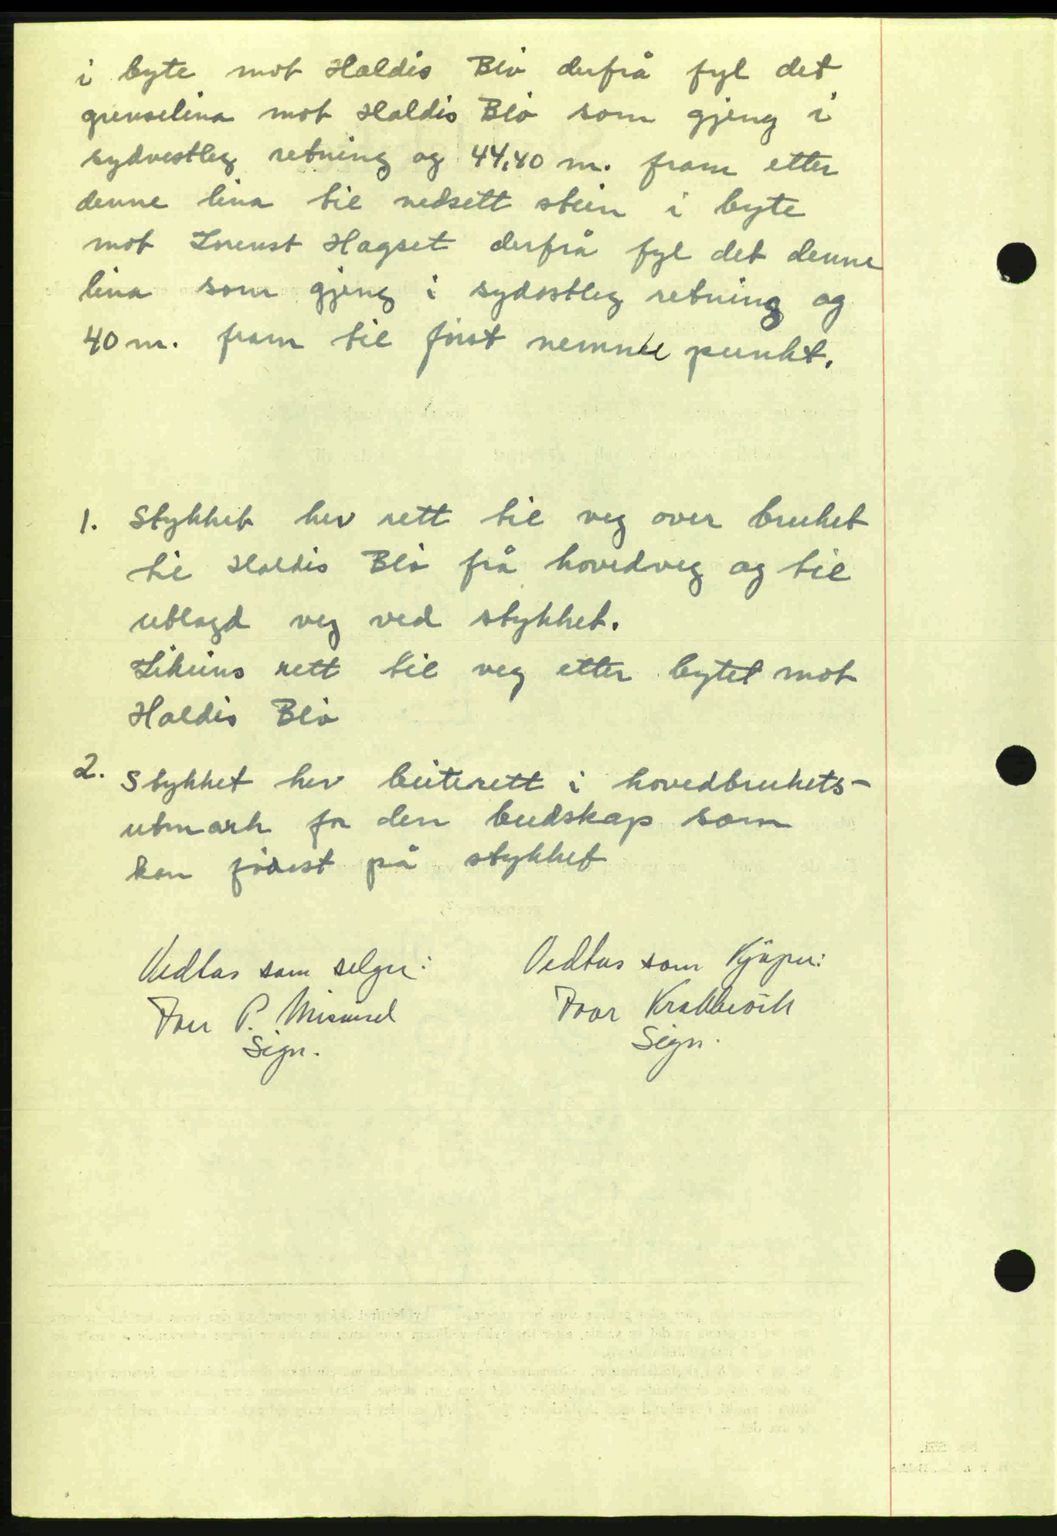 i byte mot Haldis Blø derfrå fyl det
grenselina mot Haldis Blø som gjeng i
sydvestleg retning og 44,40 m. fram etter
denne lina til nedsett stein i byte
mot Hagset derfrå fyl det denne
lina som gjeng i sydostleg retning og
40 m. fram til først nemnde punkt.
1. Stykket hev rett til veg over bruket
til Haldis Blø frå hovedveg og til
utlagd veg ved stykket.
Likeins rett til veg etter bytet mot
Haldis Blø
2. Stykket hev beiterett i hovedbrukets-
utmark for den buskap som
kan fødest på stykket
Vedtas som selger:
Iver P.
Sign.
Vedtas som Kjøper:
Ivar
Sign.